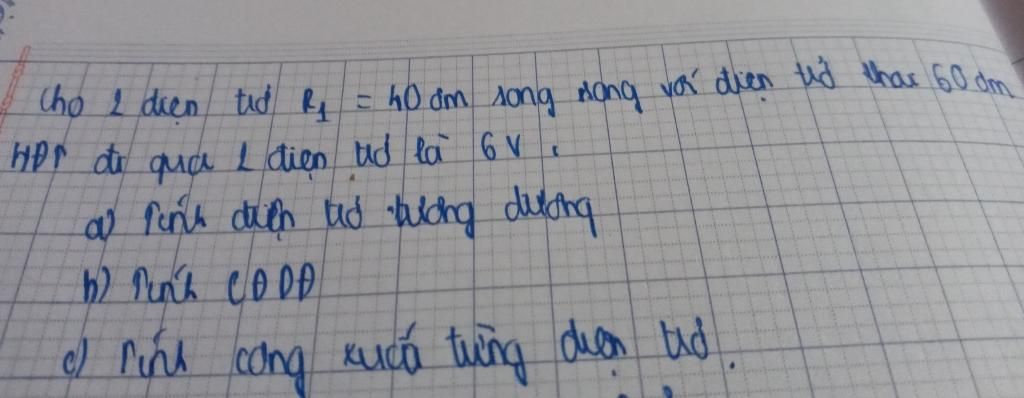 Cho 2 điện trở R1 = 40 ôm song song với điện trở khác 60 ôm
HĐT đi qua 2 điện trở là 6V.
a) Tính điện trở tương đương
b) Tính CĐDĐ
c) Tính công suất từng điện trở.